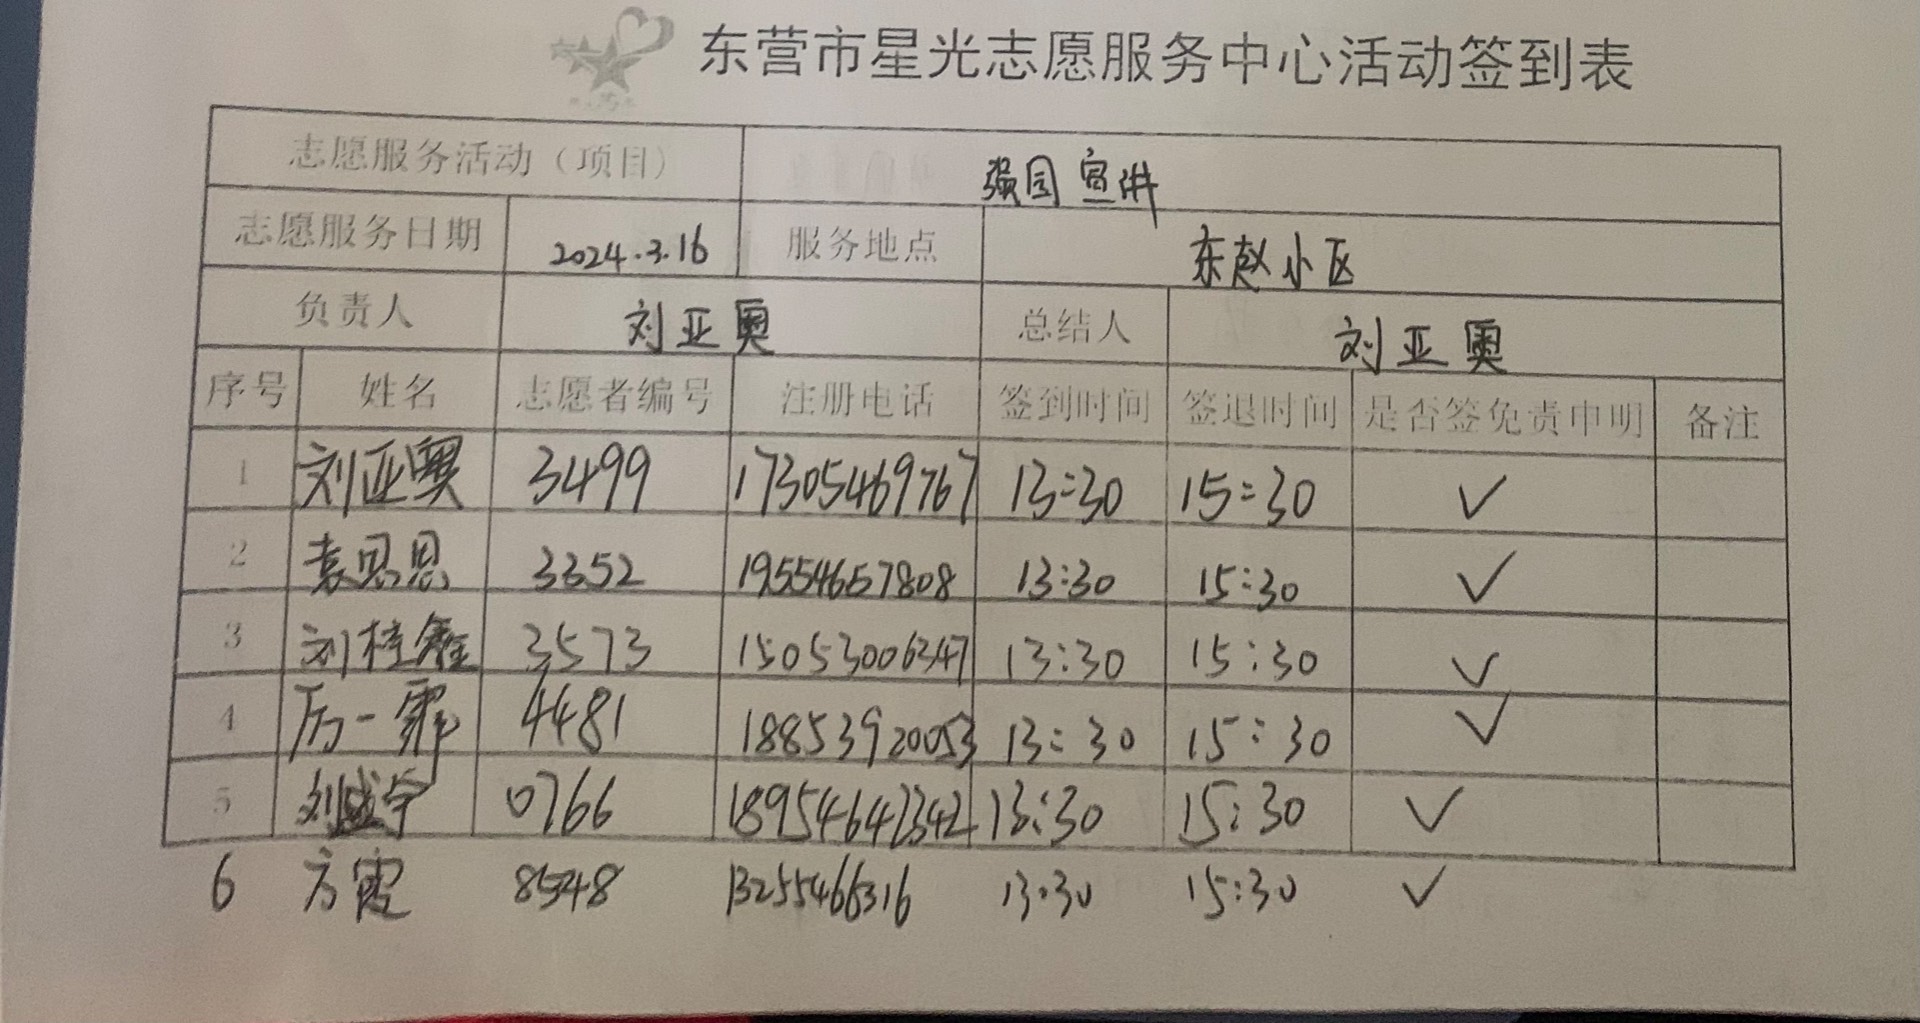 东营市星光志愿服务中心活动签到表
志愿服务活动（项目） 强国宣讲
志愿服务日期 2024.3.16 服务地点 东赵小区
负责人 刘亚奥 总结人 刘亚奥
序号 姓名 志愿者编号 注册电话 签到时间 签退时间 是否签免责申明 备注
1 刘亚奥 3499 17305469767 13:30 15:30 ✓
2 袁思恩 3352 19554657808 13:30 15:30 ✓
3 刘桂 3573 15053006347 13:30 15:30 ✓
4 厉一霏 4481 18853920053 13:30 15:30 ✓
5 刘盛宇 0766 18954647342 13:30 15:30 ✓
6 方霞 8548 13255466316 13:30 15:30 ✓